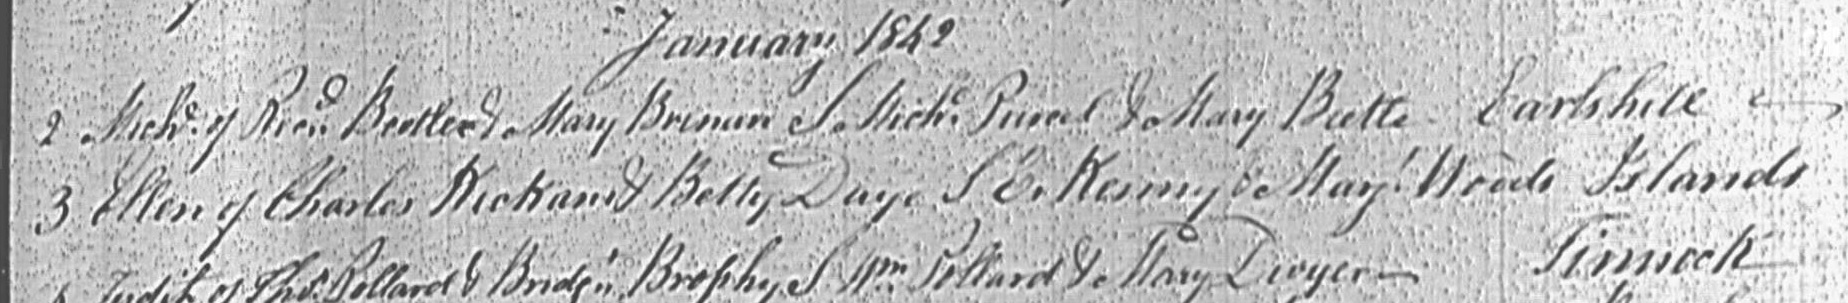 January 1842
2 Michl. of Richd. Butler & Mary Brenan S. Michl. Purcel & Mary Butler Earlshill
3 Ellen of Charles & Betty Daye S. E. Kenny & Mary Woods Islands
Judith of Thos. Pollard & Bridgt. Brophy S. Wm. Pollard & Mary Dwyer Tinnock